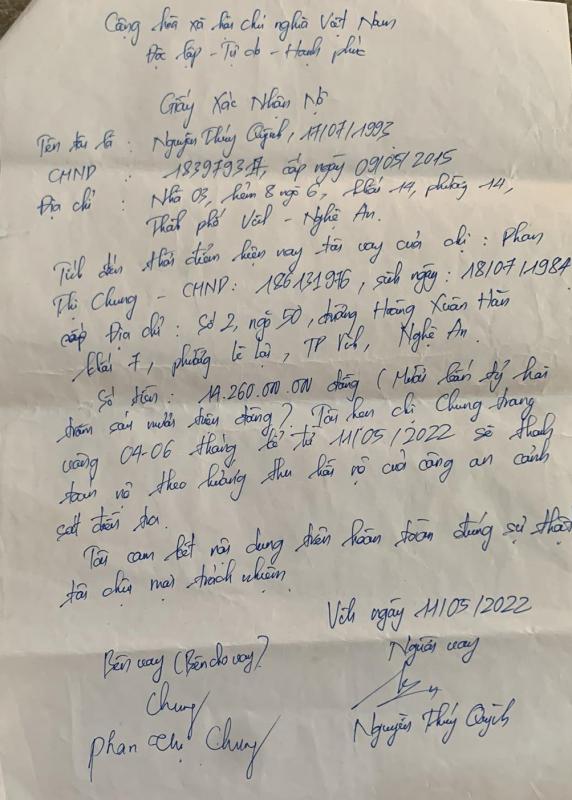 Cộng hòa xã hội chủ nghĩa Việt Nam
Độc lập - Tự do - Hạnh phúc
Giấy Xác Nhận Nợ
Tên tôi là : Nguyễn Thúy Quỳnh, 17/07/1993
CMND : cấp ngày 09/05/2015
Địa chỉ : Nhà 03, hẻm 8 ngõ 6, khối 14, phường 14,
Thành phố Vinh - Nghệ An.
Tính đến thời điểm hiện nay tôi vay của chị : Phan
Thị Chung - CMND: 186131976, sinh ngày: 18/07/1984
cấp Địa chỉ : Số 2, ngõ 50, đường Hoàng Xuân Hãn
khối 7, phường Lê Lợi, TP Vinh, Nghệ An.
Số tiền : 14.260.000.000 đồng (Mười bốn tỷ hai
trăm sáu mươi triệu đồng). Tôi hẹn chị Chung trong
vòng 04-06 tháng kể từ 11/05/2022 sẽ thanh
toán nợ theo hướng thu hồi nợ của công an cảnh
sát điều tra.
Tôi cam kết nội dung trên hoàn toàn đúng sự thật
tôi chịu mọi trách nhiệm
Vinh ngày 11/05/2022
Bên vay (Bên cho vay) Người vay
Chung
Phan Thị Chung Nguyễn Thúy Quỳnh